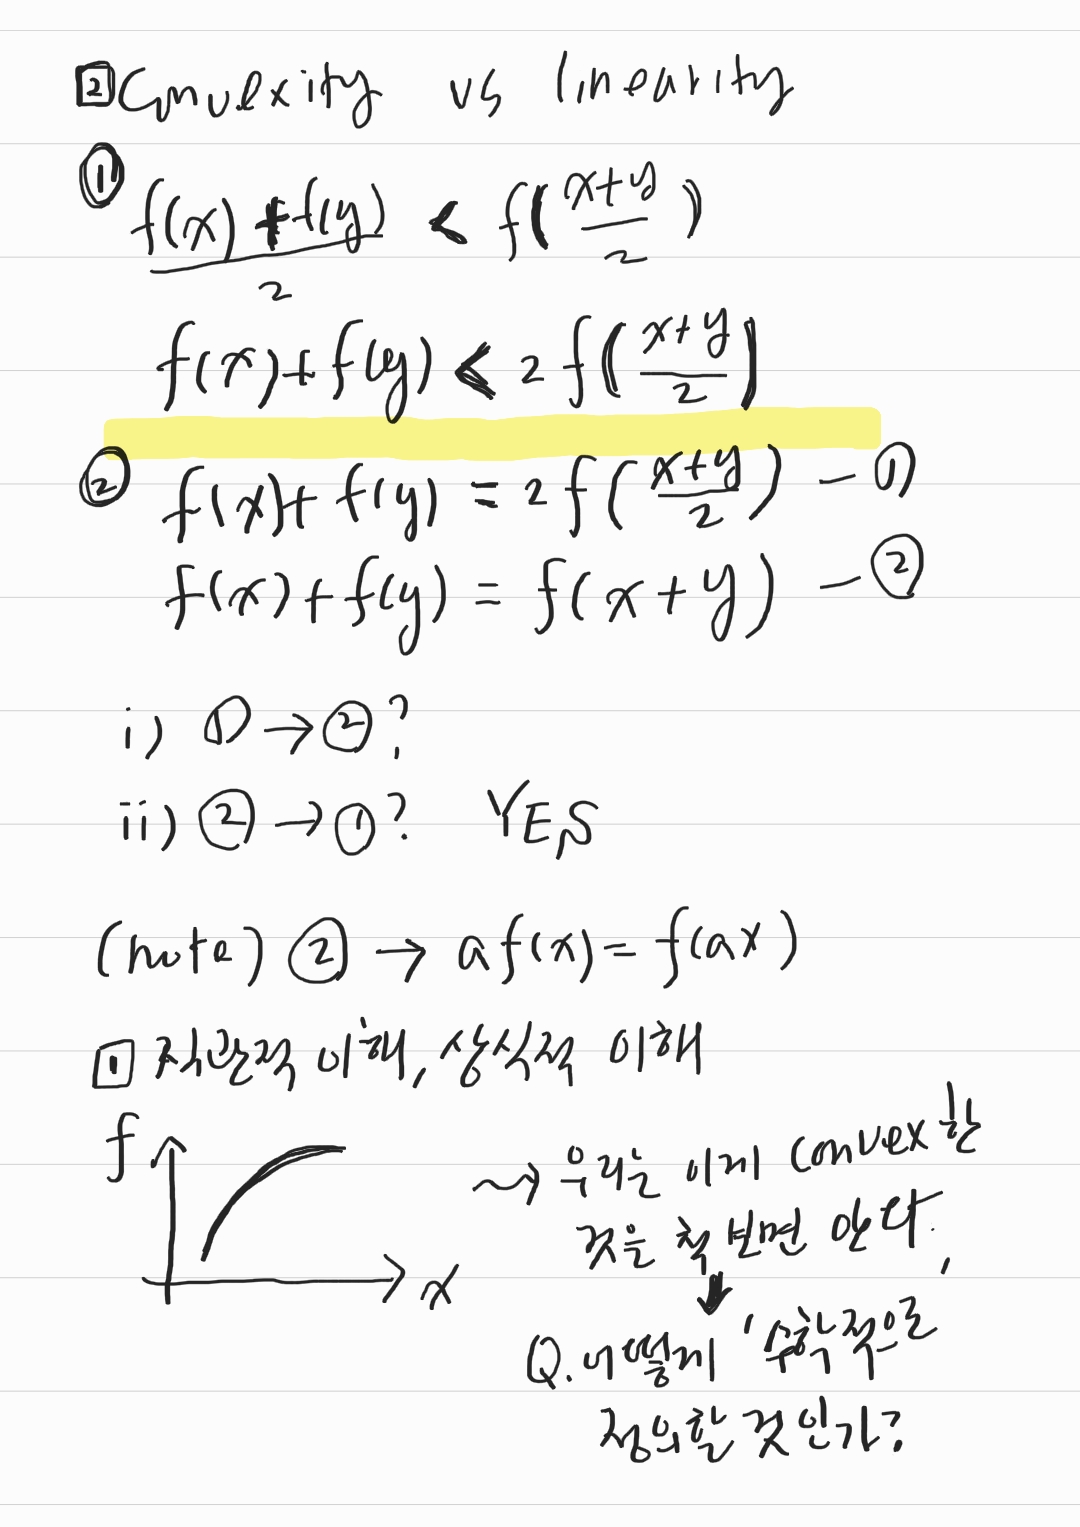 [2] Convexity vs linearity
① (f(x) + f(y))/2 < f((x+y)/2)
f(x) + f(y) < 2f((x+y)/2)
② f(x) + f(y) = 2f((x+y)/2) — ①
f(x) + f(y) = f(x+y) — ②
i) ① → ②?
ii) ② → ①? YES
(note) ② → af(x) = f(ax)
[1] 직관적 이해, 상식적 이해
f
x
⇝ 우리는 이게 convex한
것을 척 보면 안다.
↓
Q. 어떻게 '수학적으로'
정의할 것인가?